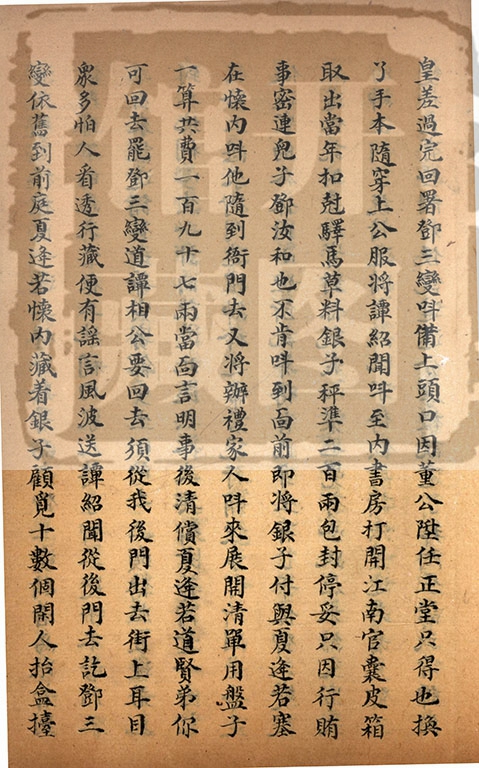 皇差過完回署鄧三變呌備上頭口因董公陞任正堂只得也換
了手本隨穿上公服將譚紹聞呌至內書房打開江南官囊皮箱
取出當年扣尅驛馬草料銀子秤準二百兩包封停妥只因行賄
事密連兒子鄧汝和也不肯呌到面前即將銀子付與夏逄若塞
在懷內呌他隨到衙門去又將辦禮家人呌來展開清單用盤子
一算共費一百九十七兩當面言明事後清償夏逄若道賢弟你
可回去罷鄧三變道譚相公要回去須從我後門出去街上耳目
衆多怕人看透行藏便有謡言風波送譚紹聞從後門去訖鄧三
變依舊到前庭夏逄若懷內藏着銀子顧覓十數個閒人抬盒擡